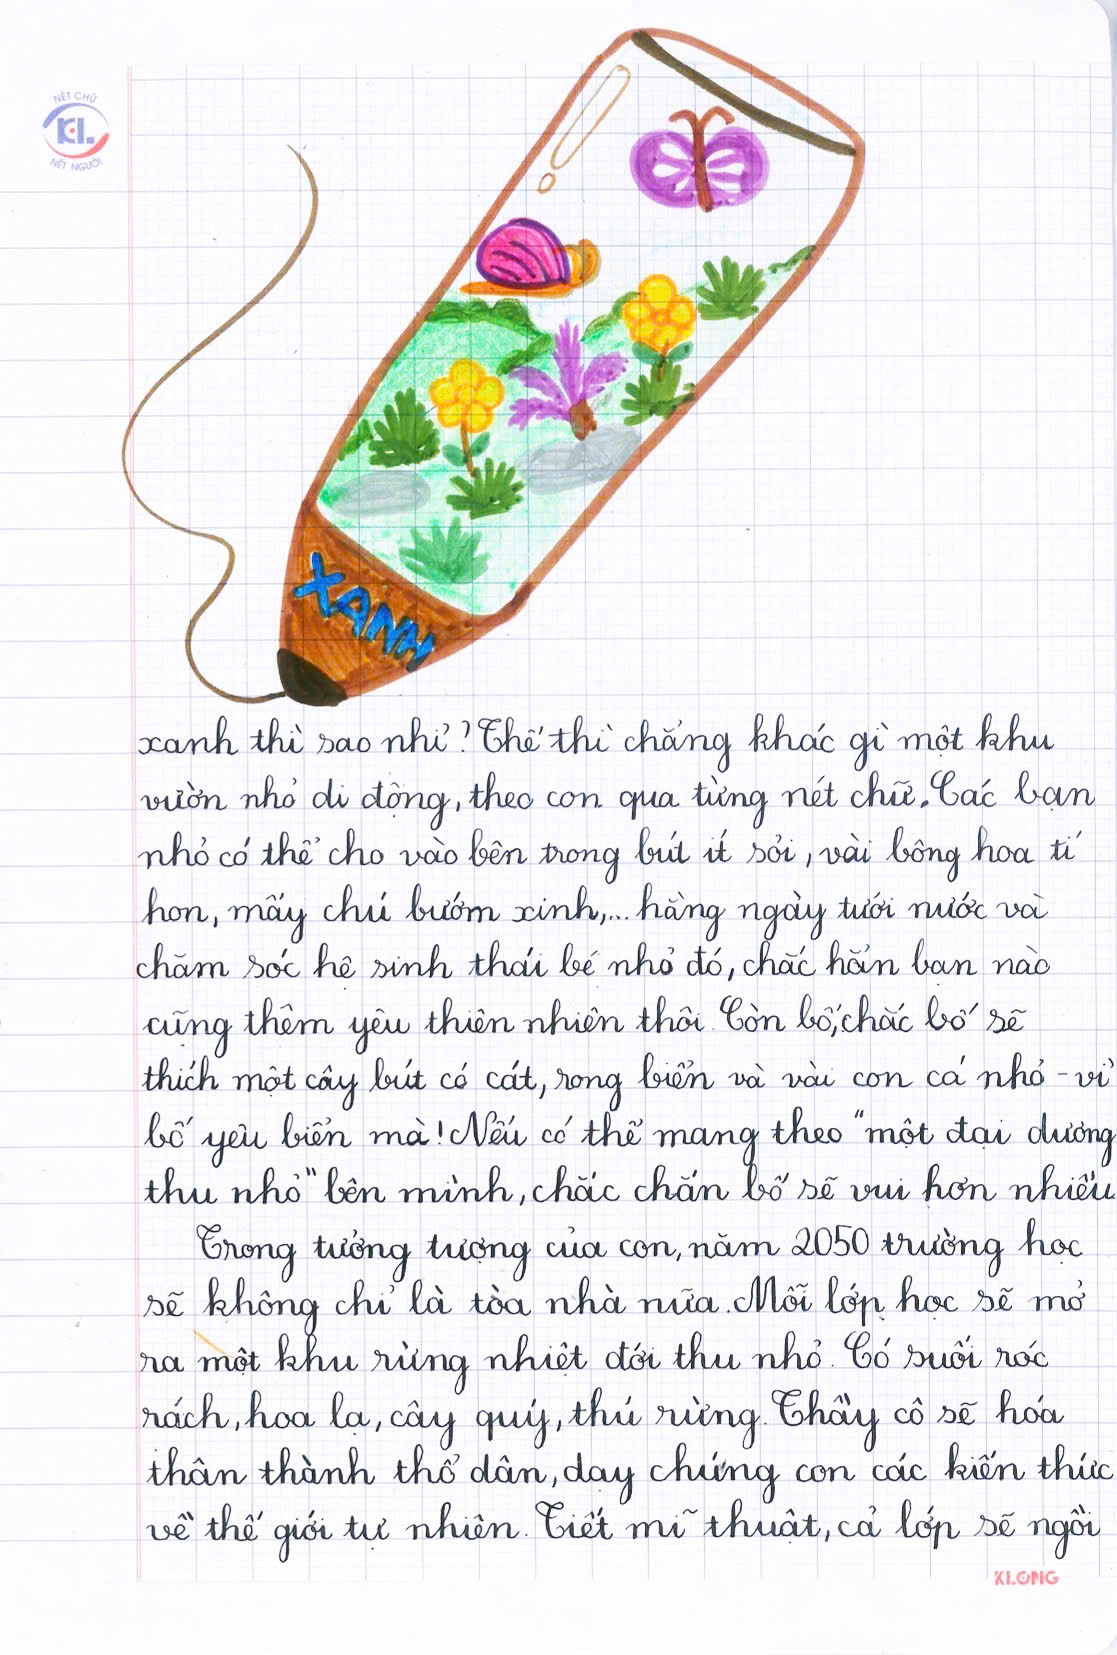 NÉT CHỮ
KL
NẾT NGƯỜI
XANH
xanh thì sao nhỉ? Thế thì chẳng khác gì một khu
vườn nhỏ di động, theo con qua từng nét chữ. Các bạn
nhỏ có thể cho vào bên trong bút ít sỏi, vài bông hoa tí
hon, mấy chú bướm xinh,... hằng ngày tưới nước và
chăm sóc hệ sinh thái bé nhỏ đó, chắc hẳn bạn nào
cũng thêm yêu thiên nhiên thôi. Còn bố, chắc bố sẽ
thích một cây bút có cát, rong biển và vài con cá nhỏ - vì
bố yêu biển mà! Nếu có thể mang theo "một đại dương
thu nhỏ" bên mình, chắc chắn bố sẽ vui hơn nhiều.
Trong tưởng tượng của con, năm 2050 trường học
sẽ không chỉ là tòa nhà nữa. Mỗi lớp học sẽ mở
ra một khu rừng nhiệt đới thu nhỏ. Có suối róc
rách, hoa lạ, cây quý, thú rừng. Thầy cô sẽ hóa
thân thành thổ dân, dạy chúng con các kiến thức
về thế giới tự nhiên. Tiết mĩ thuật, cả lớp sẽ ngồi
KLONG